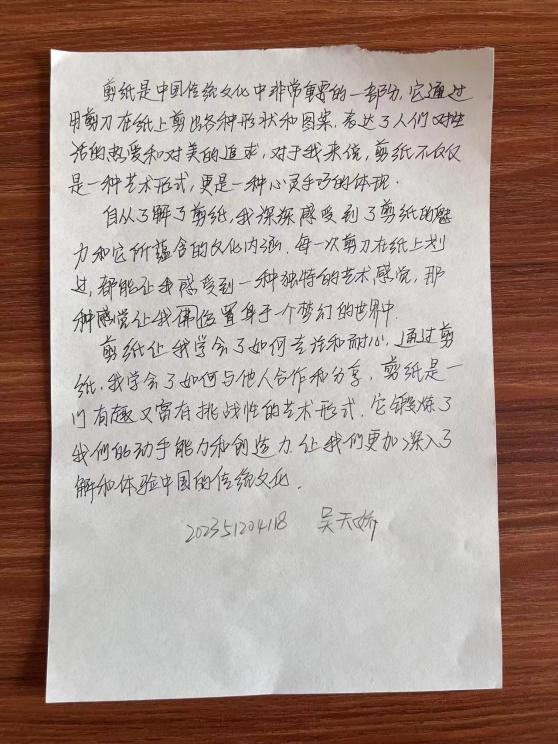 剪纸是中国传统文化中非常重要的一部分,它通过
用剪刀在纸上剪出各种形状和图案,表达了人们对生
活的热爱和对美的追求,对于我来说,剪纸不仅仅
是一种艺术形式,更是一种心灵手巧的体现.
自从了解了剪纸,我深深感受到了剪纸的魅
力和它所蕴含的文化内涵.每一次剪刀在纸上划
过,都能让我感受到一种独特的艺术感觉,那
种感觉让我佛佁置身于一个梦幻的世界中.
剪纸让我学会了如何专注和耐心.通过剪
纸,我学会了如何与他人合作和分享.剪纸是一
门有趣又富有挑战性的艺术形式.它锻炼了
我们的动手能力和创造力.让我们更加深入了
解和体验中国的传统文化.
202351204118 吴天娇